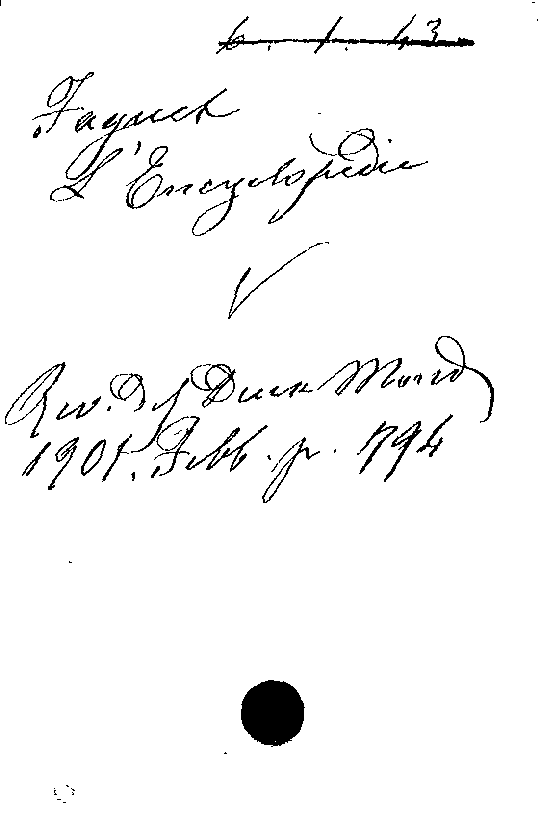 6. 1. 43.
Faguet
L'Encyclopédie
V
Rev. d. Deux Mond,
1901. Febb. p. 794